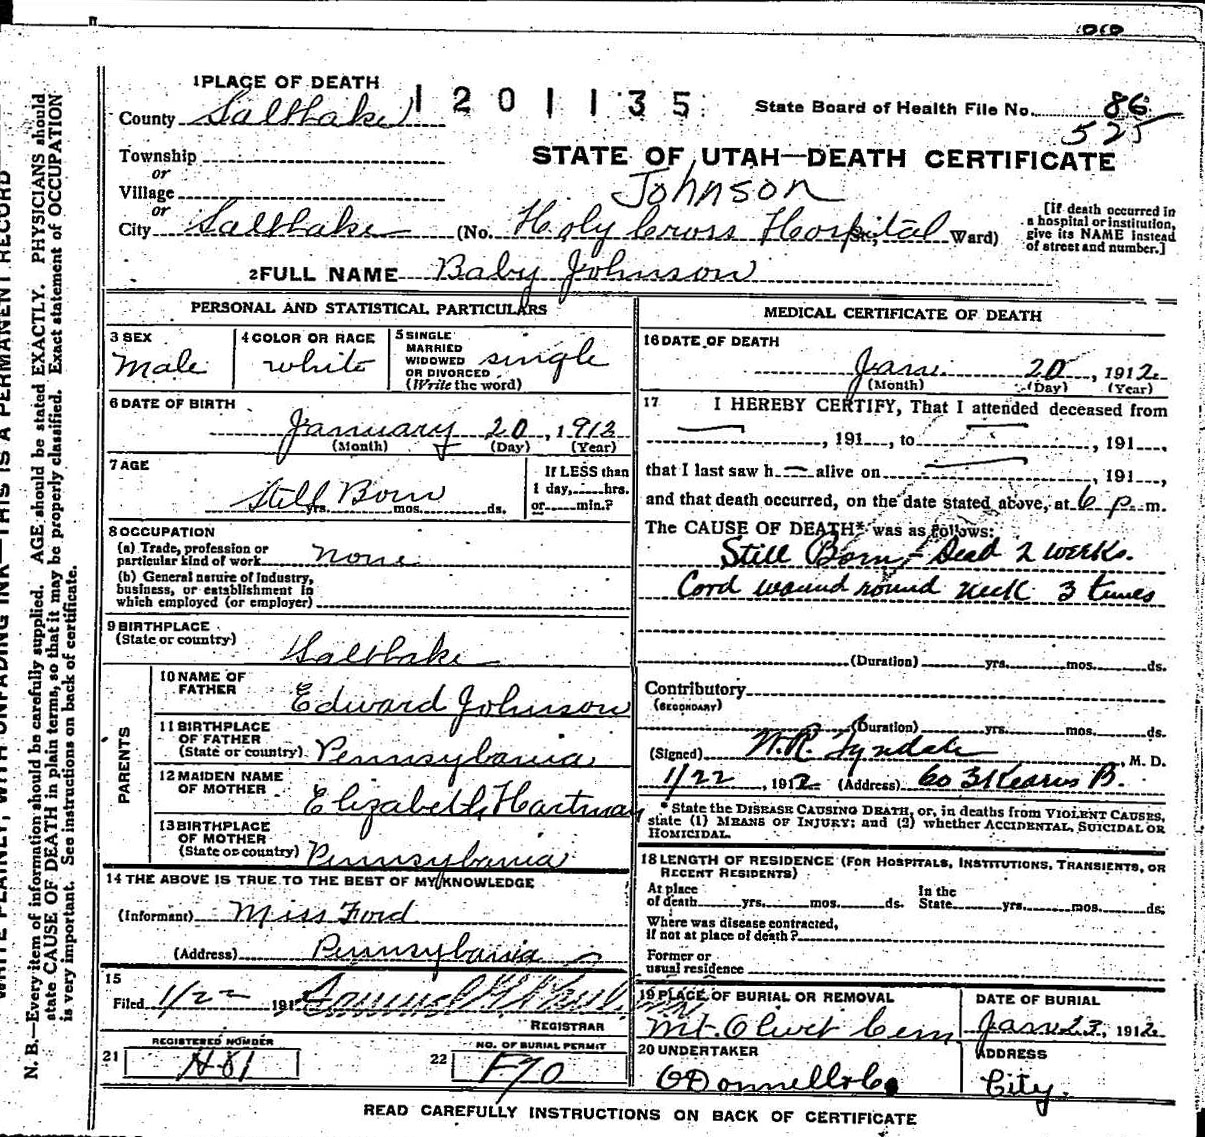 1010
1 PLACE OF DEATH
1201135
State Board of Health File No. 86
525
County Saltlake
STATE OF UTAH—DEATH CERTIFICATE
Township
or
Village
or
Johnson
City Saltlake (No. Holy Cross Hospital Ward)
[If death occurred in
a hospital or institution,
give its NAME instead
of street and number.]
2 FULL NAME Baby Johnson
PERSONAL AND STATISTICAL PARTICULARS
3 SEX
Male
4 COLOR OR RACE
white
5 SINGLE
MARRIED
WIDOWED
OR DIVORCED
(Write the word)
single
6 DATE OF BIRTH
January 20, 1912
(Month) (Day) (Year)
7 AGE
Still Born
yrs. mos. ds.
If LESS than
1 day, hrs.
or min.?
8 OCCUPATION
(a) Trade, profession or
particular kind of work none
(b) General nature of Industry,
business, or establishment in
which employed (or employer)
9 BIRTHPLACE
(State or country)
Saltlake
PARENTS
10 NAME OF
FATHER
Edward Johnson
11 BIRTHPLACE
OF FATHER
(State or country) Pennsylvania
12 MAIDEN NAME
OF MOTHER
Elizabeth Hartman
13 BIRTHPLACE
OF MOTHER
(State or country) Pennsylvania
14 THE ABOVE IS TRUE TO THE BEST OF MY KNOWLEDGE
(Informant) Miss Ford
(Address) Pennsylvania
15
Filed 1/22 191
REGISTRAR
REGISTERED NUMBER
21 H81
NO. OF BURIAL PERMIT
22 F70
MEDICAL CERTIFICATE OF DEATH
16 DATE OF DEATH
Jan. 20, 1912
(Month) (Day) (Year)
17 I HEREBY CERTIFY, That I attended deceased from
, 191 , to , 191 ,
that I last saw h alive on , 191 ,
and that death occurred, on the date stated above, at 6 p. m.
The CAUSE OF DEATH* was as follows:
Still Born - Dead 2 weeks.
Cord wound round neck 3 times
(Duration) yrs. mos. ds.
Contributory
(SECONDARY)
(Duration) yrs. mos. ds.
(Signed) W.R. Tyndale, M. D.
1/22, 1912 (Address) 603 Kearns B.
* State the DISEASE CAUSING DEATH, or, in deaths from VIOLENT CAUSES,
state (1) MEANS OF INJURY; and (2) whether ACCIDENTAL, SUICIDAL OR
HOMICIDAL.
18 LENGTH OF RESIDENCE (FOR HOSPITALS, INSTITUTIONS, TRANSIENTS, OR
RECENT RESIDENTS)
At place
of death yrs. mos. ds.
In the
State yrs. mos. ds.
Where was disease contracted,
If not at place of death?
Former or
usual residence
19 PLACE OF BURIAL OR REMOVAL
Mt. Olivet Cem
DATE OF BURIAL
Jan 23, 1912
20 UNDERTAKER
O'Donnell & Co.
ADDRESS
City.
READ CAREFULLY INSTRUCTIONS ON BACK OF CERTIFICATE
WRITE PLAINLY, WITH UNFADING INK—THIS IS A PERMANENT RECORD
N. B.—Every item of information should be carefully supplied. AGE should be stated EXACTLY. PHYSICIANS should
state CAUSE OF DEATH in plain terms, so that it may be properly classified. Exact statement of OCCUPATION
is very important. See instructions on back of certificate.